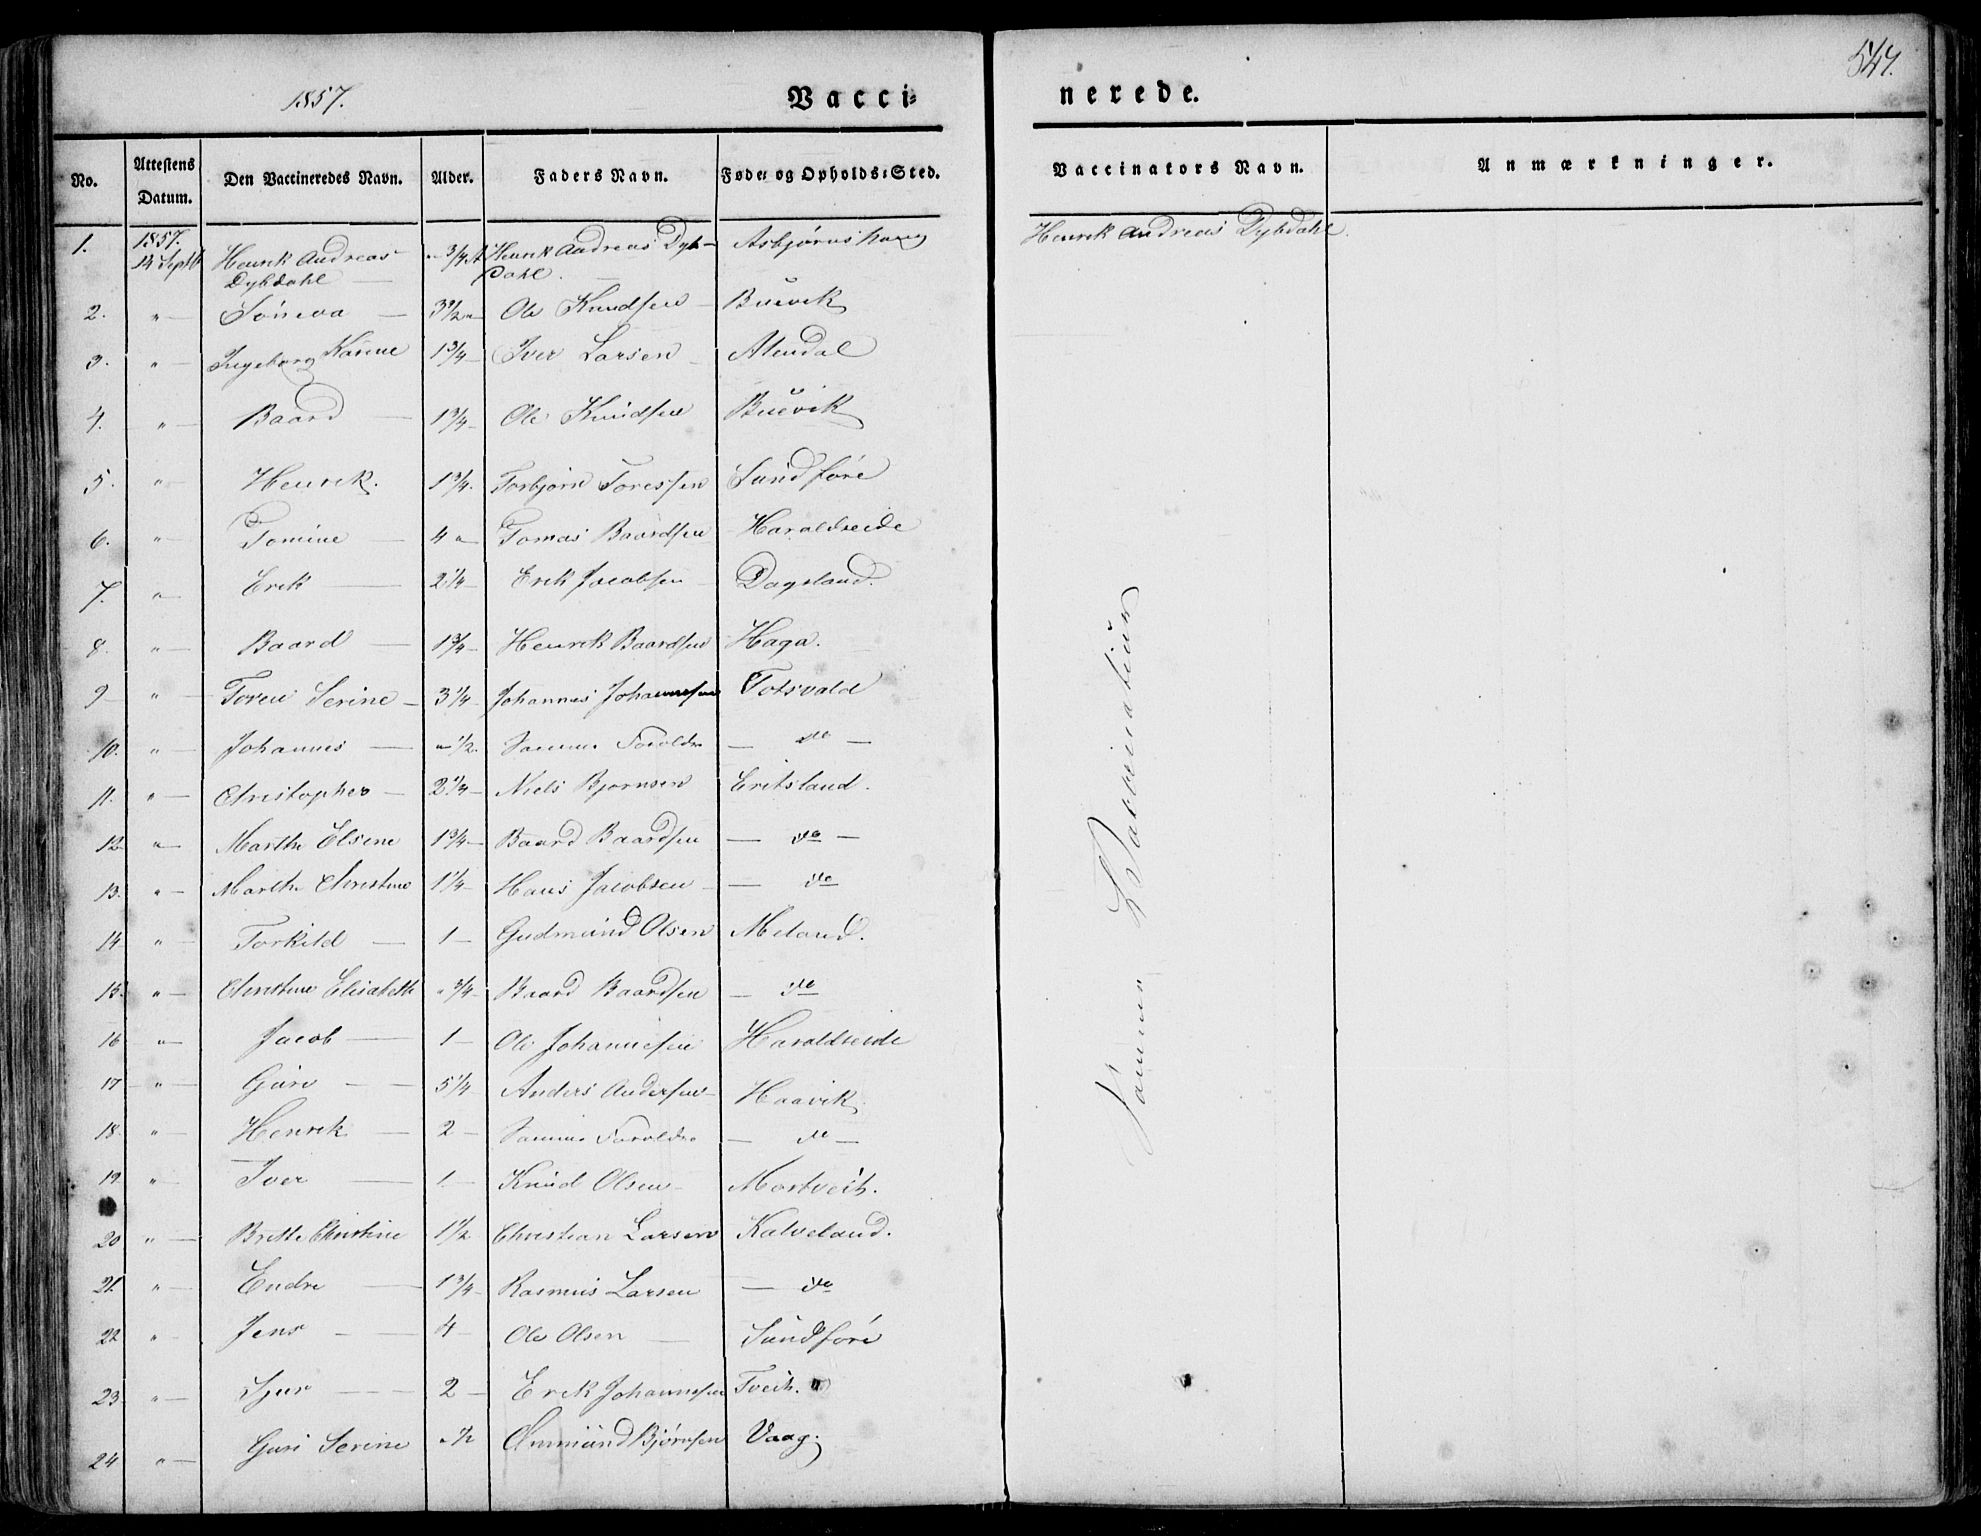 1857.
Vacci=
nerede.
547.
No. Attestens Datum. Den Vaccineredes Navn. Alder. Faders Navn. Føde= og Opholds=Sted. Vaccinators Navn. Anmærkninger.
1. 1857. 14 Septbr Henrik Andreas Dybdahl — " 3/4 A Henrik Andreas Dyb- dahl. Asbjørns Henrik Andreas Dybdahl.
2. " — Sóneva — 3 1/2 " Ole Knudsen — Buevik
3. " — Ingeborg Karine 1 3/4 — Iver Larsen — Alendal
4. " — Baard — 1 3/4 — Ole Knudsen Buevik
5. " — Henrik. 1 3/4. Torbjørn Toressen Sundføre
6. " — Tomine — 4 " — Tomas Baardsen Haraldseide
7. " — Erik — 2 1/4 — Erik Jacobsen — Dagsland.
8. " — Baard — 1 3/4 — Henrik Baardsen Haga.
9 " — Toren Serine — 3 1/4 — Johannes Johannesen Totsvald
10. " — Johannes — " 1/2. Samme Foreldre — do —
11. " — Christopher — 2 1/4 — Niels Bjornsen Eritsland.
12. " — Marthe Elsene 1 3/4 — Baard Baardsen — do —
13. " — Marthe Christine 1 1/4 — Hans Jacobsen — — do
14. " — Torkild — 1 — Gudmund Olsen Meland.
15. " — Christine Elisabeth " 3/4 — Baard Baardsen — do
16 " — Jacob — 1 — Ole Johannesen Haraldseide
17 " — Guro — 5 1/4 Anders Andersen — Haavik.
18. " — Henrik — 2 — Samme Foreldre — do —
19. " — Iver — 1. — Knud Olsen — Mortveit.
20 " — Britte Christine 1 1/2 Christian Larsen Kalveland.
21. " — Endre — 1 3/4 — Rasmus Larsen — do
22 " — Jens — 4 — Ole Olsen — Sundføre
23 " — Sjur — 2 — Erik Johannesen Tveit.
24 " — Guri Serine " 1/2 Ømmund Bjørnsen Vaag.
Samme Vaccinateur